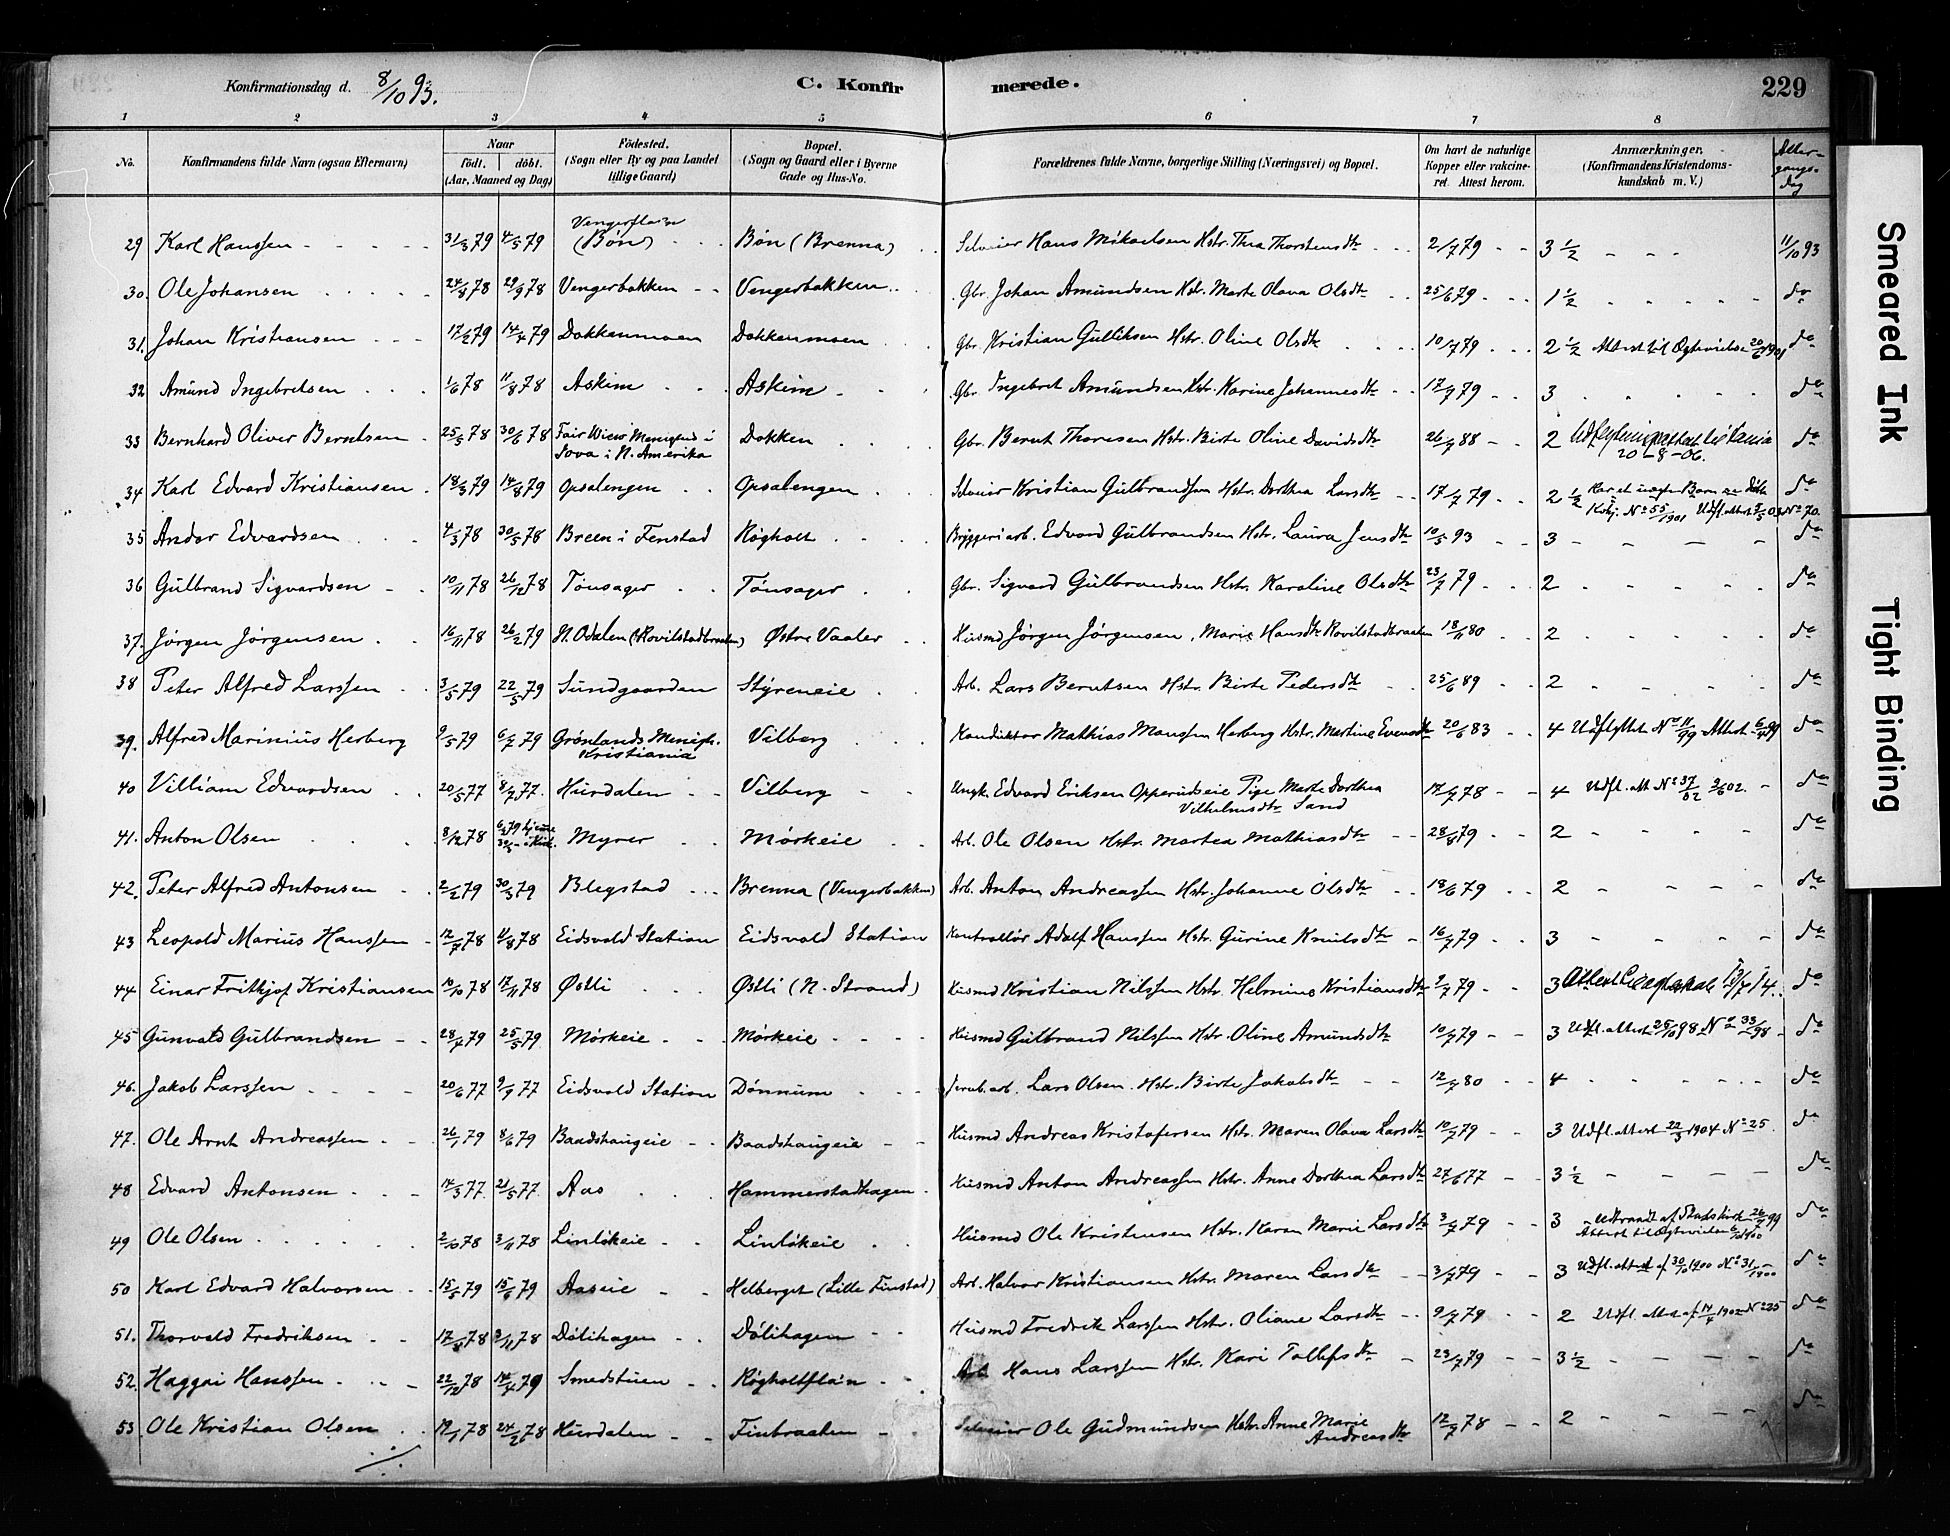 Konfirmationsdag d. 8/10 93. C. Konfirmerede. 229
1 2 3 4 5 6 7 8
No. Konfirmandens fulde Navn (ogsaa Efternavn) Naar födt. döbt. (Aar, Maaned og Dag) Födested. (Sogn eller By og paa Landet tillige Gaard) Bopæl. (Sogn og Gaard eller i Byerne Gade og Hus-No. Forældrenes fulde Navne, borgerlige Stilling (Næringsvei) og Bopæl. Om havt de naturlige Kopper eller vakcineret. Attest herom. Anmærkninger. (Konfirmandens Kristendomskundskab m. V.) Altergangsdag
29 Karl Hanssen 31/3 79 4/5 79 Vengerflaen (Bön) Bön (Brenna) Selveier Hans Mikaelsen Hstr. Thea Thorstensdtr 2/7 79 3 1/2 11/10 93
30. Ole Johansen 24/8 78 29/9 78 Vengerbakken Vengerbakken Gbr. Johan Amundsen Hstr. Marte Olava Olsdtr 25/6 79 1 1/2 do
31. Johan Kristiansen 17/2 79 14/4 79 Dokkenmoen Dokkenmoen Gbr. Kristian Gulliksen Hstr. Oline Olsdtr 10/7 79 2 1/2 Attest til Ægtevielse 1901 do
32 Amund Ingebretsen 1/6 78 11/8 78 Askim Askim Gbr. Ingebret Amundsen Hstr. Karine Johannesdtr 17/7 79 3 do
33 Bernhard Oliver Berntsen 25/5 78 30/6 78 Fair Wiew Menighed i Iova i N. Amerika Dokken Gbr. Bernt Thoresen Hstr. Birte Oline Davidsdtr 26/7 88 2 Udflytningsattest til Kania 20-8-06. do
34 Karl Edvard Kristiansen 18/3 79 14/8 79 Opsalengen Opsalengen Selveier Kristian Gulbrandsen Hstr. Dorthea Larsdtr 17/7 79 2 1/2 Har et uægte Barn Kskj. No 55/1901 Udfl. attest No 70. do
35 Andor Edvardsen 4/3 78 30/5 78 Breen i Fenstad Rögholt Bryggeriarb. Edvard Gulbrandsen Hstr. Laura Jensdtr 10/5 93 3 do
36 Gulbrand Sigvardsen 10/11 78 26/12 78 Tönsager Tönsager Gbr. Sigvard Gulbrandsen Hstr. Karoline Olsdtr 23/7 79 2 do
37. Jörgen Jörgensen 16/11 78 26/2 79 N. Odalen (Rovilstadbraaten) Østre Vaaler Husmd Jörgen Jörgensen, Marie Hansdtr Rovilstadbraaten 18/11 80 2 do
38 Peter Alfred Larssen 3/5 79 22/5 79 Sundgaarden Styreneie Arb. Lars Berntsen Hstr. Birte Pedersdtr 25/6 89 2 do
39. Alfred Marinius Herberg 9/5 79 6/7 79 Grönlands Menigh. Kristiania Vilberg Konduktör Mathias Monssen Herberg Hstr. Martine Evensdtr 20/6 83 4 Udflyttet No 11/99 Attest 6/4 99 do
40 Villiam Edvardsen 20/5 77 8/7 77. Hurdalen Vilberg Ungk. Edvard Eriksen Opperudseie Pige Marte Dorthea Vilhelmsdtr Sand 17/7 78 4 Udfl. att No 37/02 3/6 02. do
41. Anton Olsen 8/12 78 6/3 79 hjemme i Kirk. Myrer Mörkeie Arb. Ole Olsen Hstr. Martea Mathiasdtr 28/8 79 2 do
42. Peter Alfred Antonsen 2/2 79 30/3 79 Blegstad Brenna (Vengerbakken) Arb. Anton Andreassen Hstr. Johanne Olsdtr 18/6 79 2 do
43 Leopold Marius Hanssen 12/7 78 11/8 78 Eidsvold Station Eidsvold Station Kontrollör Adolf Hanssen Hstr. Gurine Knutsdtr 16/7 79 3 do
44 Einar Frithjof Kristiansen 10/10 78 17/11 78 Østli Østli (N. Strand) Husmd Kristian Nilssen Hstr. Helmine Kristiansdtr 9/7 79 3 Attest 13/7 14. do
45 Gunvald Gulbrandsen 28/4 79 25/5 79 Mörkeie Mörkeie Husmd Gulbrand Nilssen Hstr. Oline Amundsdtr 10/7 79 3 Udfl. attest 25/10 98 No 33/98 do
46. Jakob Larssen 20/6 77 9/9 77 Eidsvold Station Dönnum Jernb. arb. Lars Olsen. Hstr. Birte Jakobsdtr 12/7 80 4 do
47. Ole Arnt Andreassen 26/1 79 8/6 79 Baadshaugeie Baadshaugeie Husmd Andreas Kristofersen Hstr. Maren Olava Larsdtr 10/7 79 3 Udfl. attest 22/3 1904 No 25. do
48 Edvard Antonsen 14/3 77. 21/5 77. Aas Hammerstadhagen Husmd Anton Andreassen Hstr. Anne Dorthea Larsdtr 27/6 77 3 1/2 do
49 Ole Olsen 2/10 78 3/11 78 Linlökeie Linlökeie Husmd Ole Kristensen Hstr. Karen Marie Larsdtr 3/7 79 3 Udtraadt af Statskirk 26/7 99 Attest til Ægtevielse 1900 do
50 Karl Edvard Halvorsen 15/5 79 15/6 79 Aaseie Helberget (Lille Finstad) Arb. Halvor Kristiansen Hstr. Maren Larsdtr 3/7 79 3 Udfl. attest af 30/10 1900 No 31/1900 do
51. Thorvald Fredriksen 17/9 78 3/11 78 Dölihagen Dölihagen Husmd Fredrik Larssen Hstr. Oliane Larsdtr 9/7 79 2 Udfl. Attest af 14/4 1902 No 225 do
52. Haggai Hanssen 22/12 78 14/4 79 Smedstuen Rögholtflaen Arb Hans Larssen Hstr. Kari Tollefsdtr 23/7 79 3 1/2 do
53 Ole Kristian Olsen 19/1 78 24/2 78 Hurdalen Finbraaten Selveier Ole Gudmundsen Hstr. Anne Marie Andreasdtr 12/7 78 2 do
Smeared Ink
Tight Binding